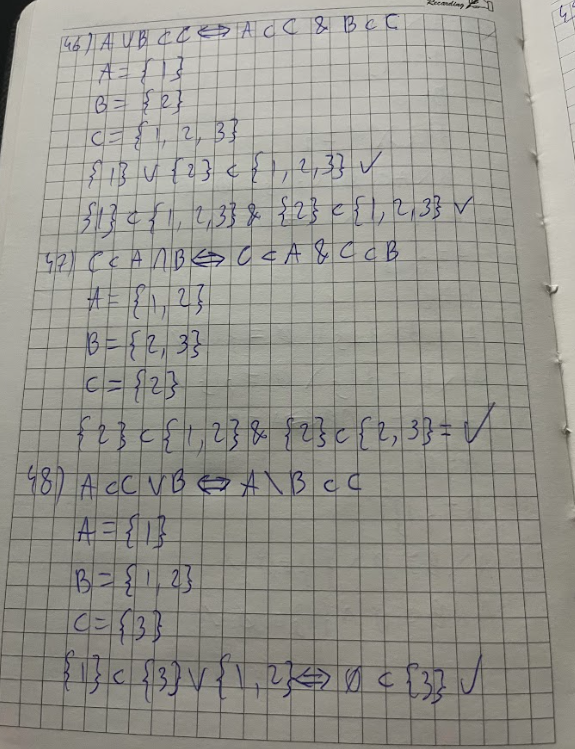 Recording
46) A ∪ B ⊂ C ⇔ A ⊂ C & B ⊂ C
A = {1}
B = {2}
C = {1, 2, 3}
{1} ∪ {2} ⊂ {1, 2, 3} ✓
{1} ⊂ {1, 2, 3} & {2} ⊂ {1, 2, 3} ✓
47) C ⊂ A ∩ B ⇔ C ⊂ A & C ⊂ B
A = {1, 2}
B = {2, 3}
C = {2}
{2} ⊂ {1, 2} & {2} ⊂ {2, 3} = ✓
48) A ⊂ C ∪ B ⇔ A \ B ⊂ C
A = {1}
B = {1, 2}
C = {3}
{1} ⊂ {3} ∪ {1, 2} ⇔ ∅ ⊂ {3} ✓